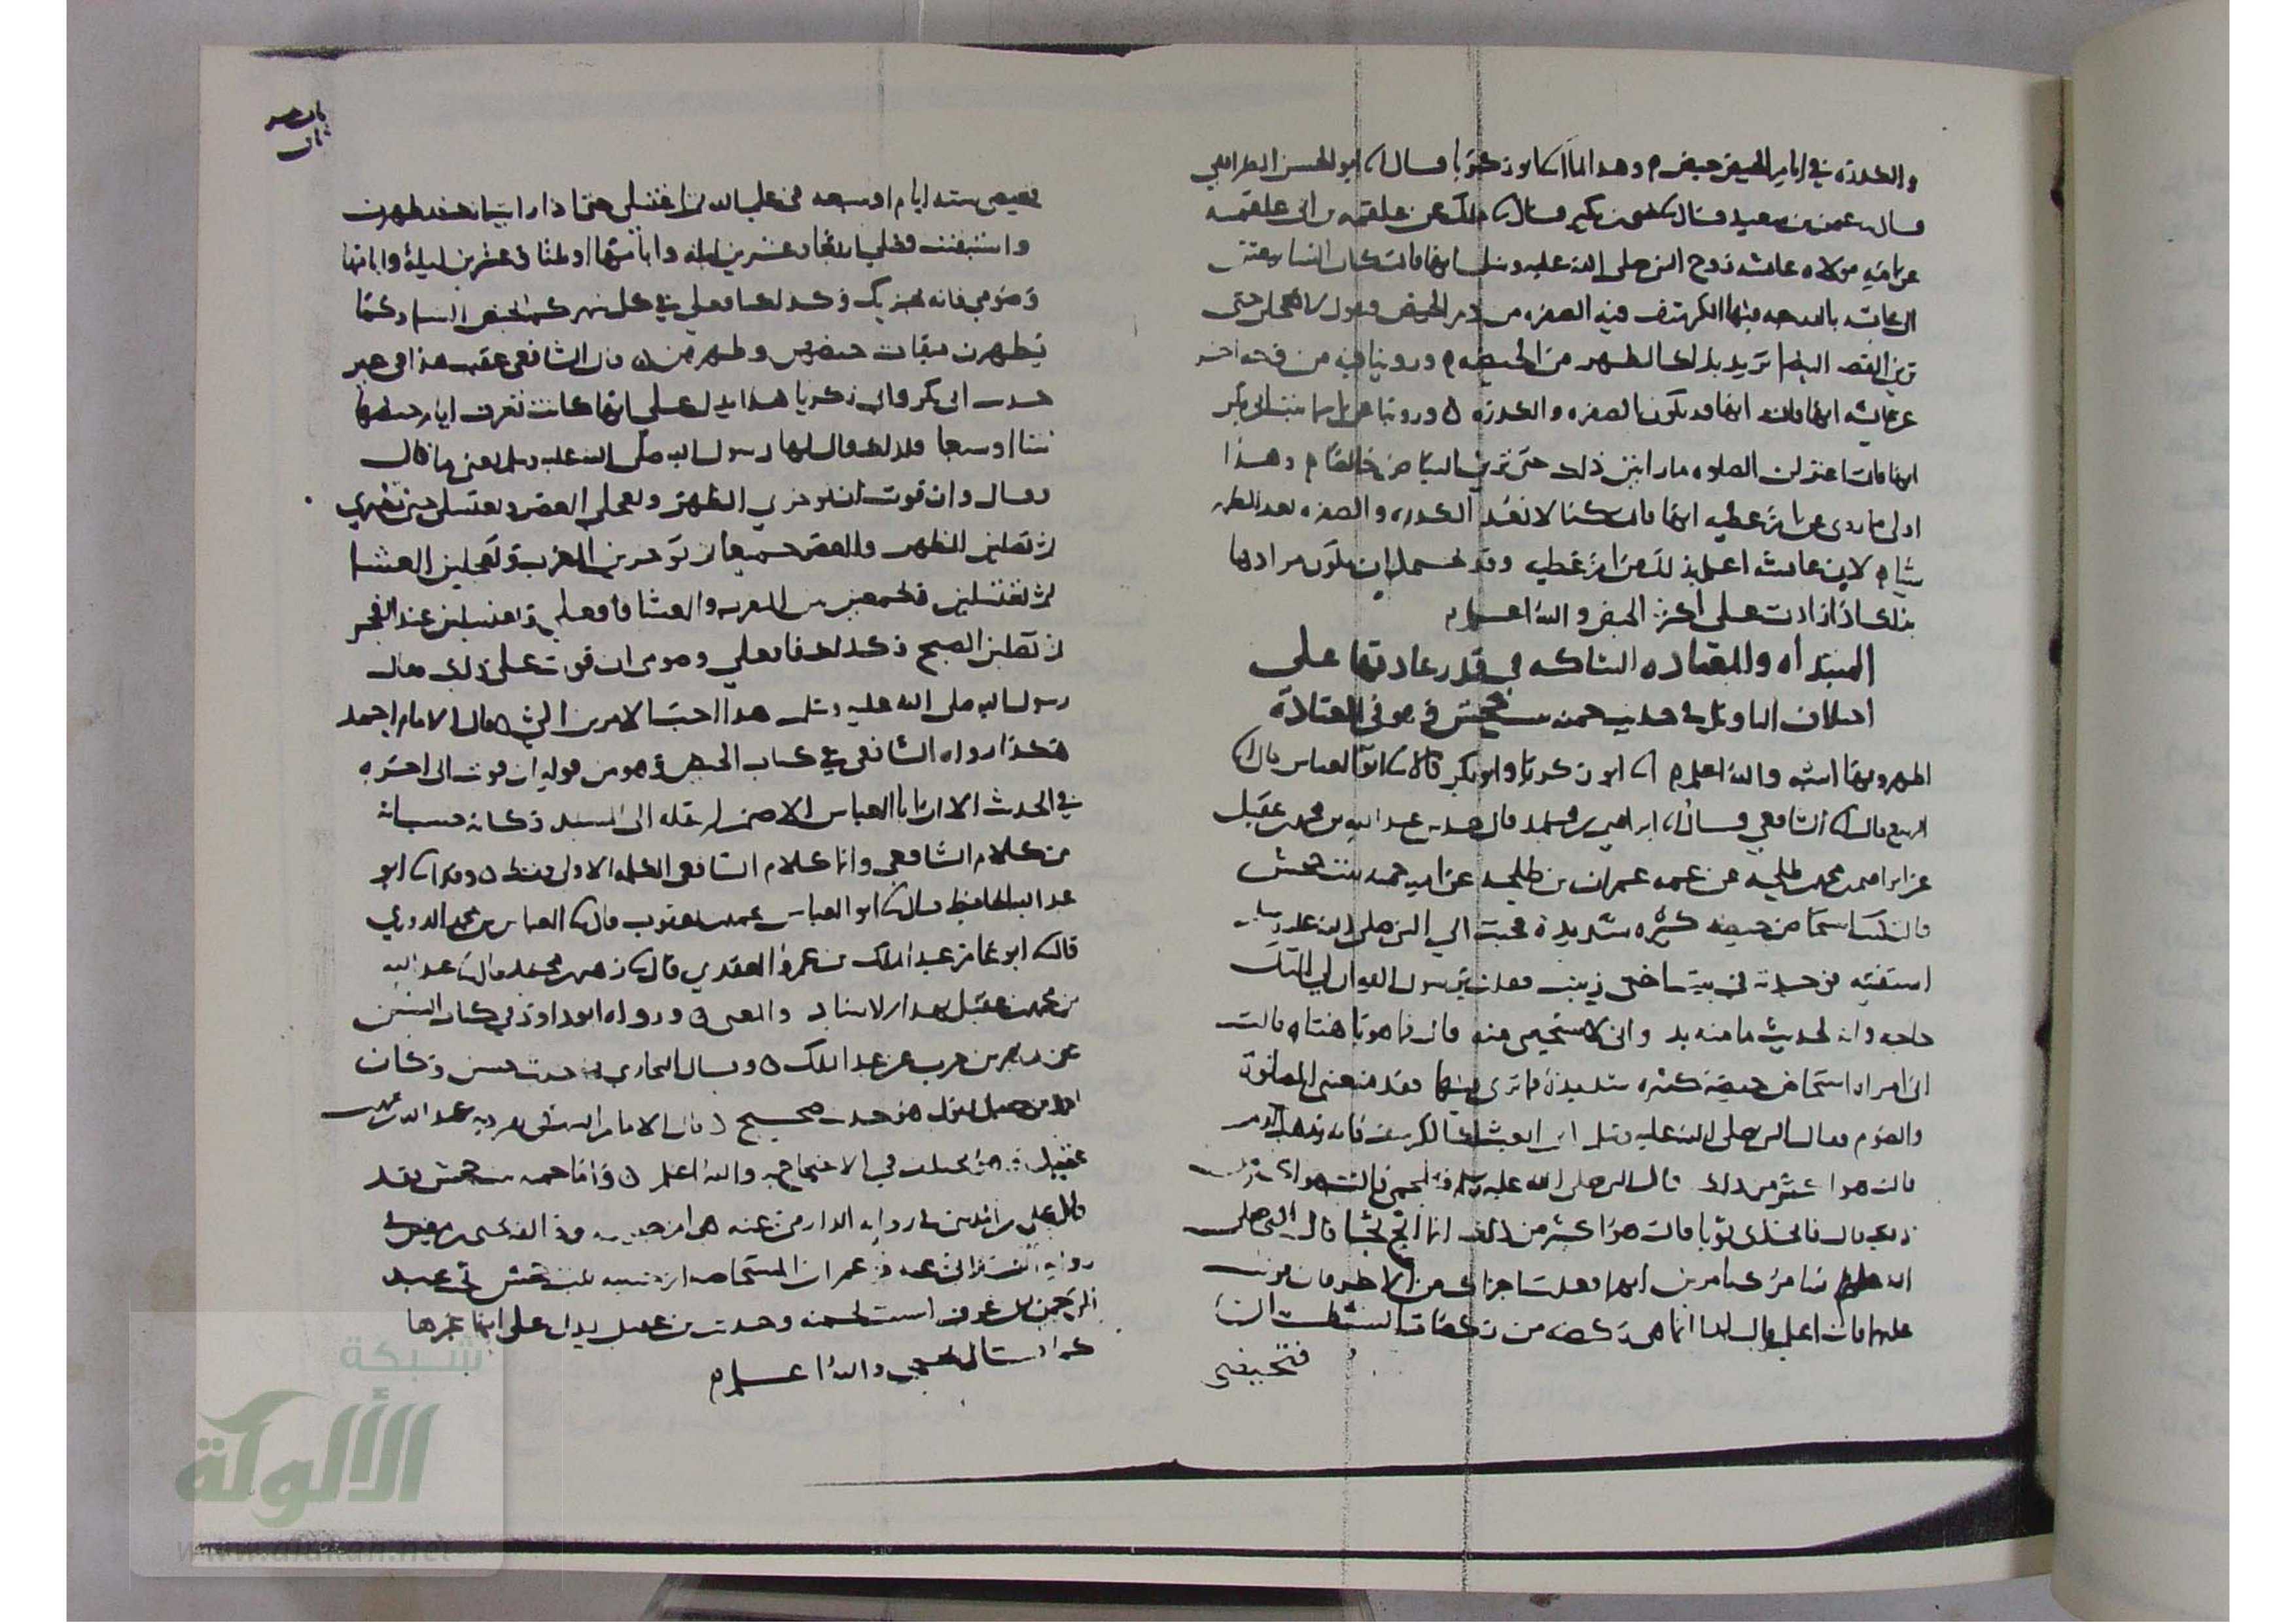 والكدرة في ايام الحيض حيض وهذا لما ابو زكريا قال ابو الحسن الطرائفي
قال عثمن بن سعيد قال بن بكير قال مالك عن علقمه بن ابي علقمه
عن امه مولاه عائشه زوج النبي صلى الله عليه وسلم انها قالت كان النسا يبعثن
الى عائشه بالدرجه فيها الكرسف فيه الصفره من دم الحيض فتقول لا تعجلن حتى
ترين القصه البيضا تريد بذلك الطهر من الحيضه وروينا فيه من وجه اخر
عن عائشه انها قالت والصفره والكدره وروينا عن اسما بنت ابي بكر
انها قالت اعتزلن الصلوه ما رايتن ذلك حتى ترين البياض خالصا وهذا
اولى مما روي عن ام عطيه انها قالت كنا لا نعد الكدره والصفره بعد الطهر
شيا لان عائشه اعلم بذلك من ام عطيه وقد يحتمل ان يكون مرادها
بذلك اذا زادت على اكثر الحيض والله اعلم
المبتداه والمعتاده الشاكه في قدر عادتها على
اختلاف التاويل في حديث حمنه بنت جحش في المعتادة
اظهر وبها اشبه والله اعلم ابو زكريا وابو بكر قالا ابو العباس قال
الربيع قال الشافعي قال ابراهيم بن محمد قال عبد الله بن محمد بن عقيل
عن ابراهيم بن محمد بن طلحه عن عمه عمران بن طلحه عن امه حمنه بنت جحش
قالت كنت استحاض حيضه كثيره شديدة فجئت الى النبي صلى الله عليه وسلم
استفتيه فوجدته في بيت اختي زينب فقلت يرسول الله ان لي اليك
حاجه وانه لحديث ما منه بد واني لاستحيي منه قال فما هو يا هنتاه قالت
اني امراه استحاض حيضة كثيره شديدة فما ترى فيها فقد منعتني الصلوة
والصوم فقال النبي صلى الله عليه وسلم اني انعت لك الكرسف فانه يذهب الدم
قالت هو اكثر من ذلك قال النبي صلى الله عليه وسلم فتلجمي قالت هو اكثر من
ذلك قال فاتخذي ثوبا قالت هو اكثر من ذلك انما اثج ثجا قال النبي صلى
الله عليه سامرك بامرين ايهما فعلت اجزاك من الاخر فان قويت
عليهما فانت اعلم قال لها انما هي ركضه من ركضات الشيطان
فتحيضي
فتحيضي سته ايام او سبعه في علم الله ثم اغتسلي حتى اذا رايت انك قد طهرت
واستنقيت فصلي اربعا وعشرين ليله وايامها او ثلثا وعشرين ليلة وايامها
وصومي فانه يجزيك وكذلك افعلي في كل شهر كما تحيض النسا وكما
يطهرن ميقات حيضهن وطهرهن قال الشافعي عقب هذا في غير
حديث ابي بكر وابي زكريا هذا يدل على انها كانت تعرف ايام حيضها
ستا او سبعا فلذلك قال لها رسول الله صلى الله عليه وسلم يعني ما قال
فقال وان قويت ان تؤخري الظهر وتعجلي العصر وتغتسلي حين تطهري
ثم تصلين الظهر والعصر جميعا ثم تؤخرين المغرب وتعجلين العشا
ثم تغتسلين وتجمعين بين المغرب والعشا فافعلي وتغتسلين عند الفجر
ثم تصلين الصبح وكذلك فافعلي وصومي ان قويت على ذلك قال
رسول الله صلى الله عليه وسلم هذا احب الامرين الي قال الامام احمد
هكذا رواه الشافعي في كتاب الحيض وهو من قوله ان قويت الى اخره
في الحديث الا ان ابا العباس الاصم لم ينقله الى المسند وكانه حسبانه
من كلام الشافعي وانما كلام الشافعي الكلمه الاولى فقط وقد ابو
عبد الله الحافظ قال ابو العباس محمد بن يعقوب قال العباس بن محمد الدوري
قال ابو عامر عبد الملك بن عمرو العقدي قال زهير بن محمد قال عبد الله
بن محمد بن عقيل بهذا الاسناد والمعنى ورواه ابو داود في كتاب السنن
عن زهير بن حرب عن عبد الملك وقال البخاري هو حديث حسن وكان
احمد بن حنبل يقول هو حديث صحيح قال الامام احمد تفرد به عبد الله بن محمد
عقيل وهو مختلف في الاحتجاج به والله اعلم واما حمنه بنت جحش فقد
قال علي بن المديني في رواية الدارمي عنه هي ام حبيبه وخالفه يحيى بن معين
المستحاضه ام حبيبه بنت جحش تحت عبد
الرحمن بن عوف ليست بحمنه وحديث بن عقيل يدل على انها غيرها
كما قال يحيى والله اعلم